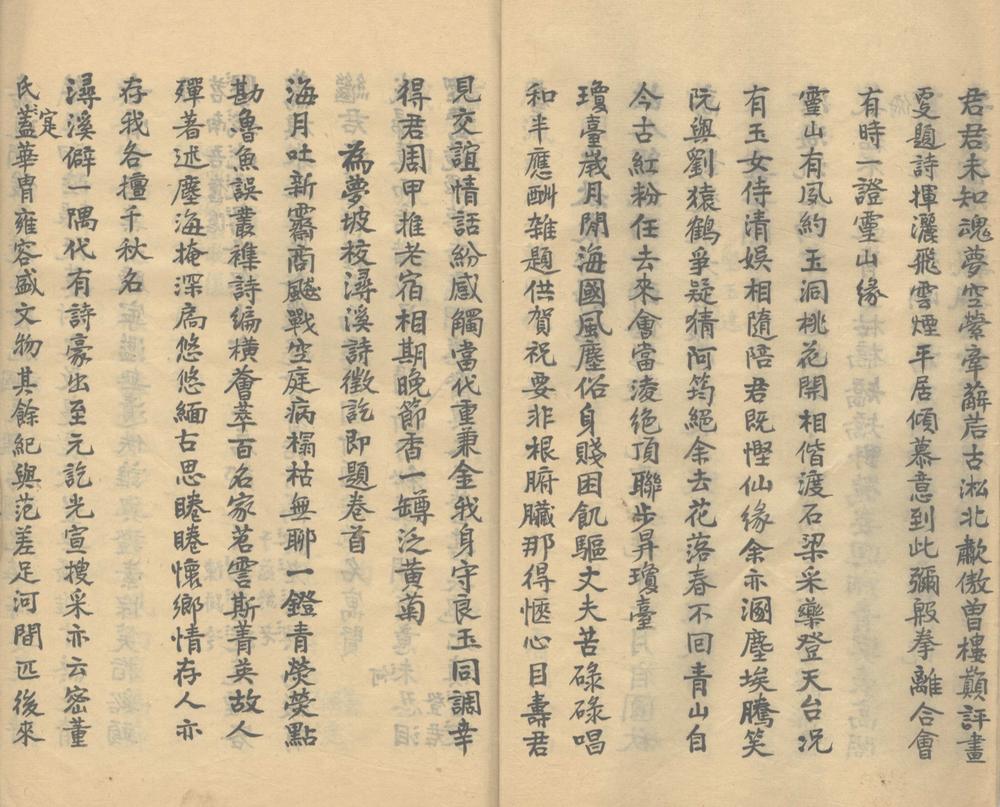 君君未知魂夢空縈牽薜荔古淞北歗傲曾樓顛評畫
更題詩揮灑飛雲煙平居傾慕意到此彌般拳離合會
有時一證靈山緣
靈山有夙約玉洞桃花開相偕渡石梁采藥登天台况
有玉女侍清娛相隨陪君既慳仙緣余亦溷塵埃騰笑
阮與劉猿鶴爭疑猜阿筠絕余去花落春不回青山自
今古紅粉任去來會當淩絕頂聯步昇瓊臺
瓊臺歲月閒海國風塵俗身賤困飢驅丈夫苦碌碌唱
和半應酬雜題供賀祝要非根腑臟那得愜心目壽君
見交誼情話紛感觸當代重兼金我身守良玉同調幸
得君周甲推老宿相期晚節香一罇泛黃菊
為夢坡校潯溪詩徵訖即題卷首
海月吐新霽商飈戰空庭病榻枯無聊一鐙青熒熒點
勘魯魚誤叢襍詩編橫薈萃百名家茗霅斯菁英故人
殫著述塵海掩深扃悠悠緬古思睠睠懷鄉情存人亦
存我各擅千秋名
潯溪僻一隅代有詩豪出至元訖光宣搜采亦云密董
氏蓋華胄雍容盛文物其餘紀與范差足河間匹後來
定